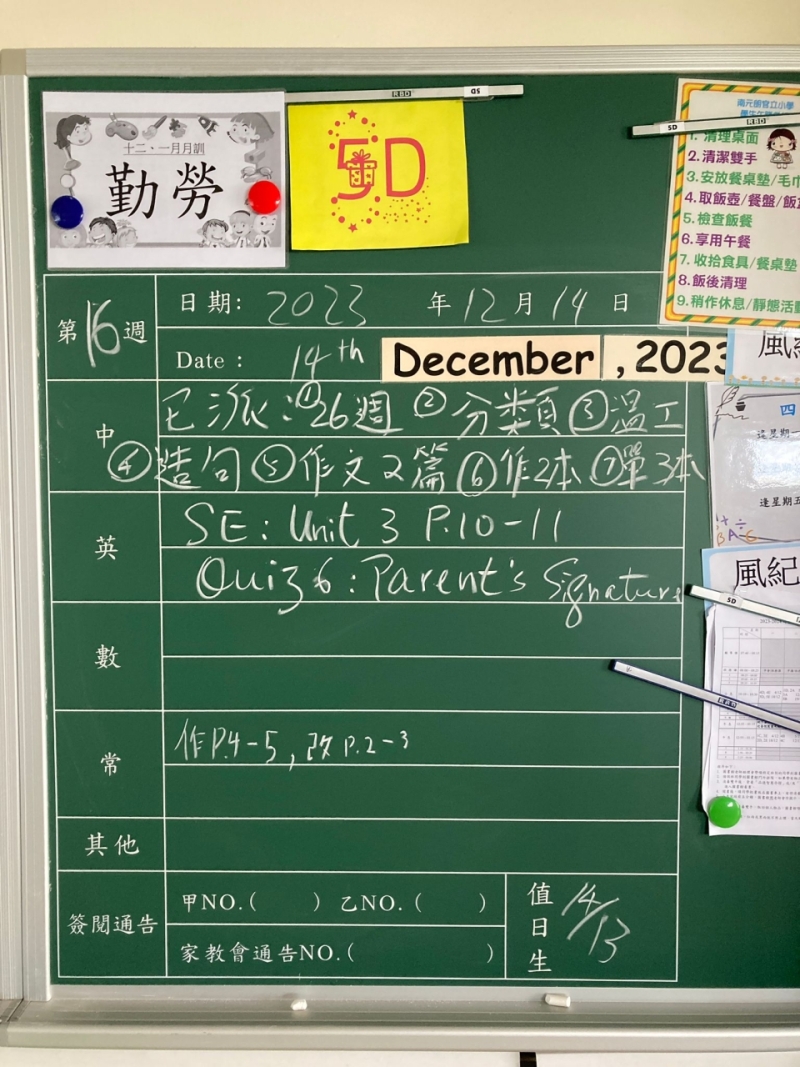 十二、一月月訓
勤勞
5D
RBD
SD
SD
RBD
南元朗官立小學
1. 清理桌面
2. 清潔雙手
3. 安放餐桌墊/毛巾
4. 取飯壺/餐盤/飯盒
5. 檢查飯餐
6. 享用午餐
7. 收拾食具/餐桌墊
8. 飯後清理
9. 稍作休息/靜態活動
第16週
日期: 2023 年 12 月 14 日
Date : 14th December , 2023
中
已派:①26週 ②分類 ③溫工
④造句 ⑤作文2篇 ⑥作2本 ⑦單3本
英
SE: Unit 3 P.10-11
Quiz 6: Parent's Signature
數
常
作P.4-5, 改P.2-3
其他
簽閱通告
甲NO.( ) 乙NO.( )
家教會通告NO.( )
值日生
14/13
風紀
四
逢星期一
逢星期五
風紀
SD